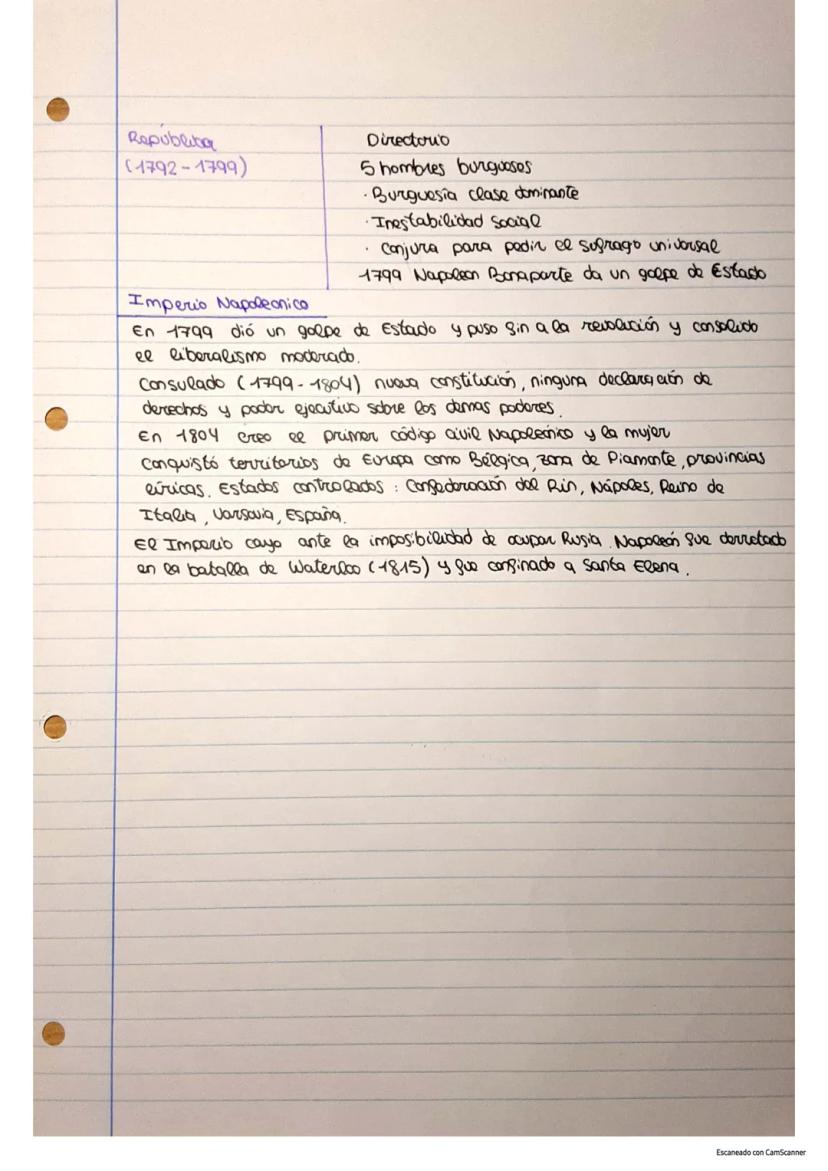 República
(1792-1799)
Directorio
5 hombres burgueses
· Burguesía clase dominante
· Inestabilidad social
· Conjura para pedir el sufragio universal
1799 Napoleon Bonaparte da un golpe de Estado
Imperio Napoleonico
En 1799 dió un golpe de Estado y puso fin a la revolución y consolido
el liberalismo moderado.
Consulado (1799-1804) nueva constitución, ninguna declaración de
derechos y poder ejecutivo sobre los demas poderes.
En 1804 creo el primer código civil Napoleónico y la mujer
Conquistó territorios de Europa como Bélgica, zona de Piamonte, provincias
ilíricas. Estados controlados: Confederación del Rin, Nápoles, Reino de
Italia, Varsovia, España.
El Imperio cayo ante la imposibilidad de ocupar Rusia. Napoleón fue derrotado
en la batalla de Waterloo (1815) y fue confinado a Santa Elena.
Escaneado con CamScanner